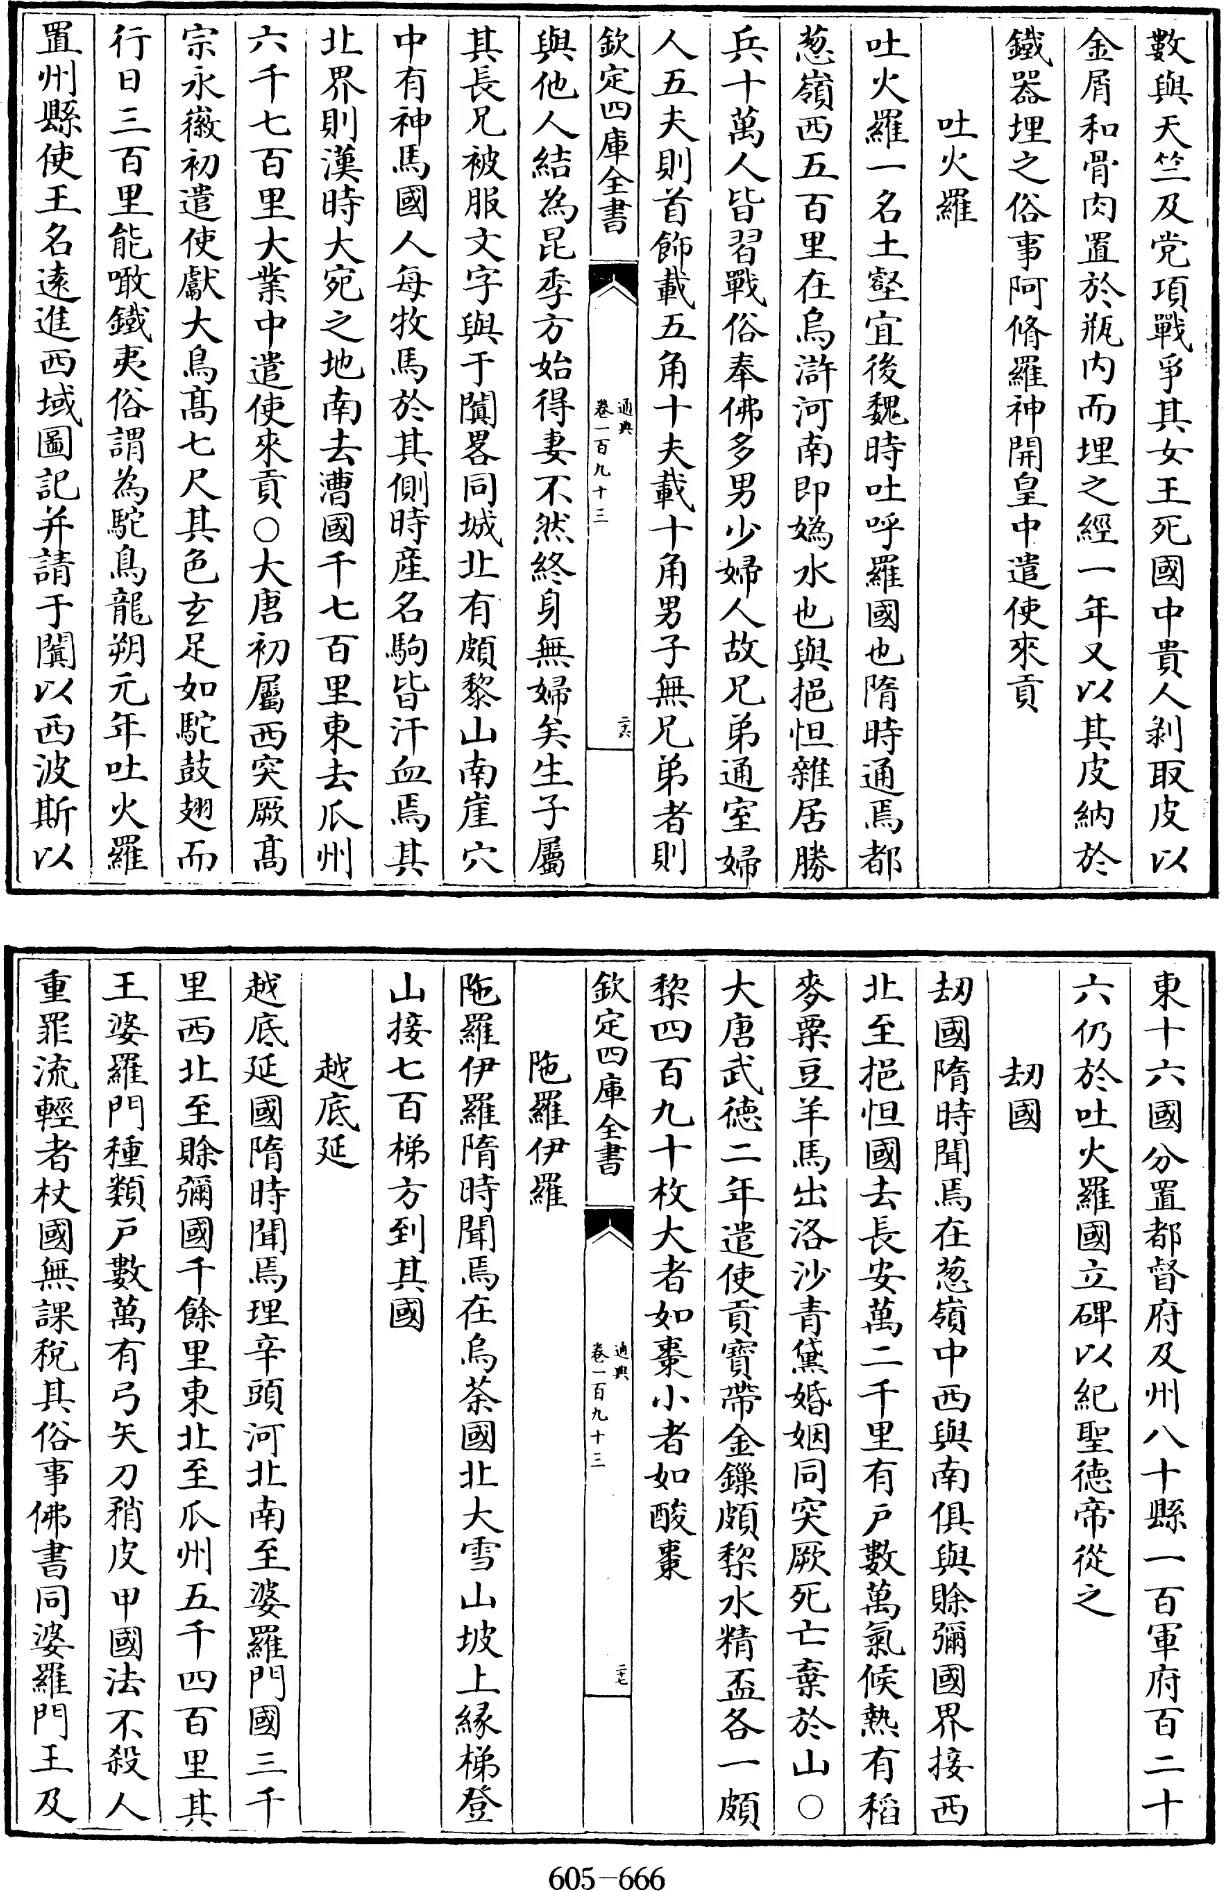 數與天竺及党項戰爭其女王死國中貴人剥取皮以
金屑和骨肉置於瓶内而埋之經一年又以其皮納於
鐵器埋之俗事阿脩羅神開皇中遣使來貢
吐火羅
吐火羅一名土壑宜後魏時吐呼羅國也隋時通焉都
葱嶺西五百里在烏滸河南即媯水也與挹怛雜居勝
兵十萬人皆習戰俗奉佛多男少婦人故兄弟通室婦
人五夫則首飾載五角十夫載十角男子無兄弟者則
欽定四庫全書
通典
卷一百九十三
二十六
與他人結為昆季方始得妻不然終身無婦矣生子屬
其長兄被服文字與于闐畧同城北有頗黎山南崖穴
中有神馬國人每牧馬於其側時産名駒皆汗血焉其
北界則漢時大宛之地南去漕國千七百里東去瓜州
六千七百里大業中遣使來貢〇大唐初屬西突厥髙
宗永徽初遣使獻大鳥髙七尺其色玄足如駝鼓翅而
行日三百里能噉鐵夷俗謂為駝鳥龍朔元年吐火羅
置州縣使王名遠進西域圖記并請于闐以西波斯以
東十六國分置都督府及州八十縣一百軍府百二十
六仍於吐火羅國立碑以紀聖德帝從之
刧國
刧國隋時聞焉在葱嶺中西與南俱與賒彌國界接西
北至挹怛國去長安萬二千里有户數萬氣候熱有稻
麥粟豆羊馬出洛沙青黛婚姻同突厥死亡棄於山〇
大唐武德二年遣使貢寳帶金鏁頗黎水精盃各一頗
黎四百九十枚大者如棗小者如酸棗
欽定四庫全書
通典
卷一百九十三
二十七
陁羅伊羅
陁羅伊羅隋時聞焉在烏荼國北大雪山坡上緣梯登
山接七百梯方到其國
越底延
越底延國隋時聞焉理辛頭河北南至婆羅門國三千
里西北至賒彌國千餘里東北至瓜州五千四百里其
王婆羅門種類户數萬有弓矢刀矟皮甲國法不殺人
重罪流輕者杖國無課稅其俗事佛書同婆羅門王及
605-666